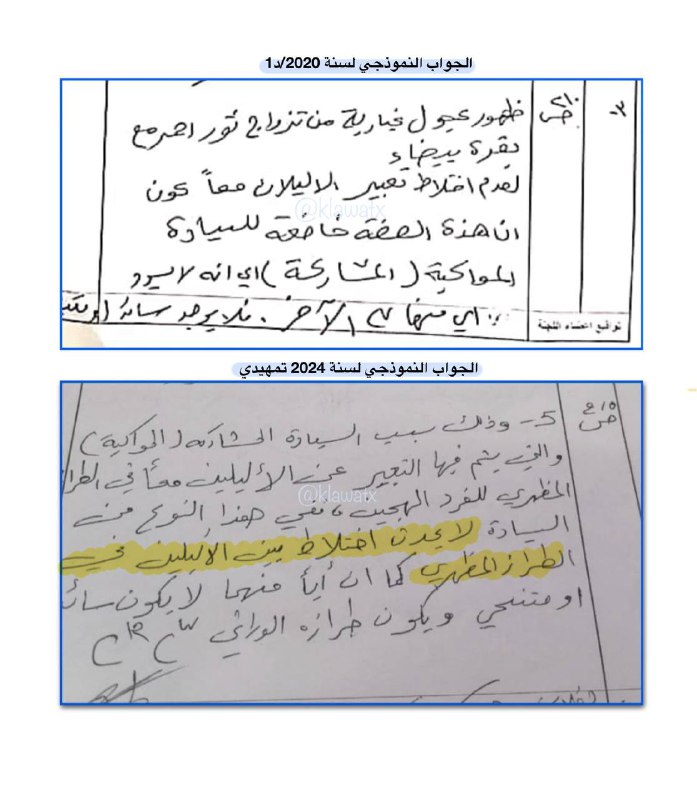 الجواب النموذجي لسنة 2020/د1
٣- ص٢١٠ ظهور عجول غبارية من تزاوج ثور احمر مع
بقرة بيضاء
لعدم اختلاط تعبير الاليلان معاً كون
@klawatx
ان هذة الصفة خاضعة للسيادة
المواكبة (المشاركة) اي انه لا يسود
اي منها على الآخر . فلا يوجد سائد او
تواقيع اعضاء اللجنة
الجواب النموذجي لسنة 2024 تمهيدي
5- وذلك بسبب السيادة المشاركة (المواكبة)
والتي يتم فيها التعبير عن الأليلين معاً في الطراز
@klawatx
المظهري للفرد الهجين، ففي هذا النوع من
السيادة لا يحدث اختلاط بين الأليلين في
الطراز المظهري كما ان أياً منهما لا يكون سائد
او متنحي ويكون طرازه الوراثي Cᴿ Cᵂ